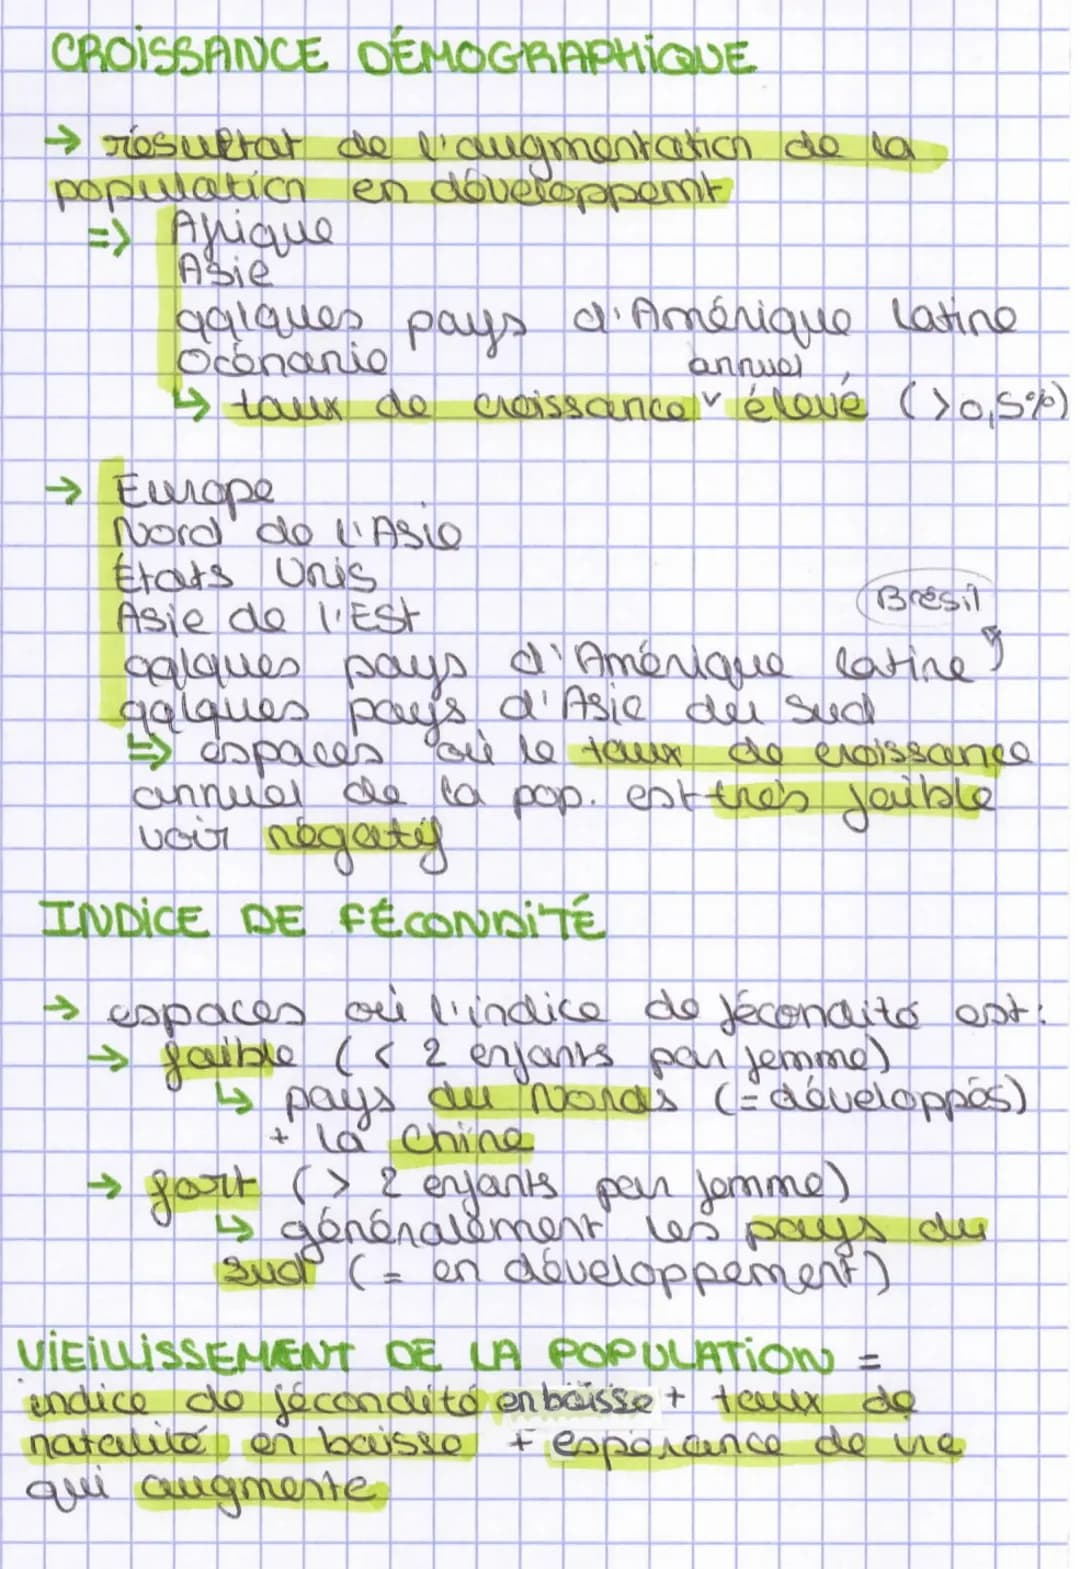 CROISSANCE DÉMOGRAPHIQUE
→ résultat de l'augmentation de la
population en développemt
=> Afrique
Asie
qqlques pays d'Amérique latine
Océnanie
annuel
↳ taux de croissance v élevé (>0,5%)
→ Europe
Nord de l'Asie
États Unis
Asie de l'Est
Brésil
qqlques pays d'Amérique latine
qqlques pays d'Asie du Sud
=> espaces où le taux de croissance
annuel de la pop. est très faible
voir négatif
INDICE DE FÉCONDITÉ
→ espaces où l'indice de fécondité est:
→ faible (< 2 enfants par femme)
↳ pays du Nords (= développés)
+ la Chine
→ fort (> 2 enfants par femme)
↳ généralement les pays du
sud (= en développement)
VIEILLISSEMENT DE LA POPULATION =
indice de fécondité en baisse + taux de
natalité en baisse + espérance de vie
qui augmente